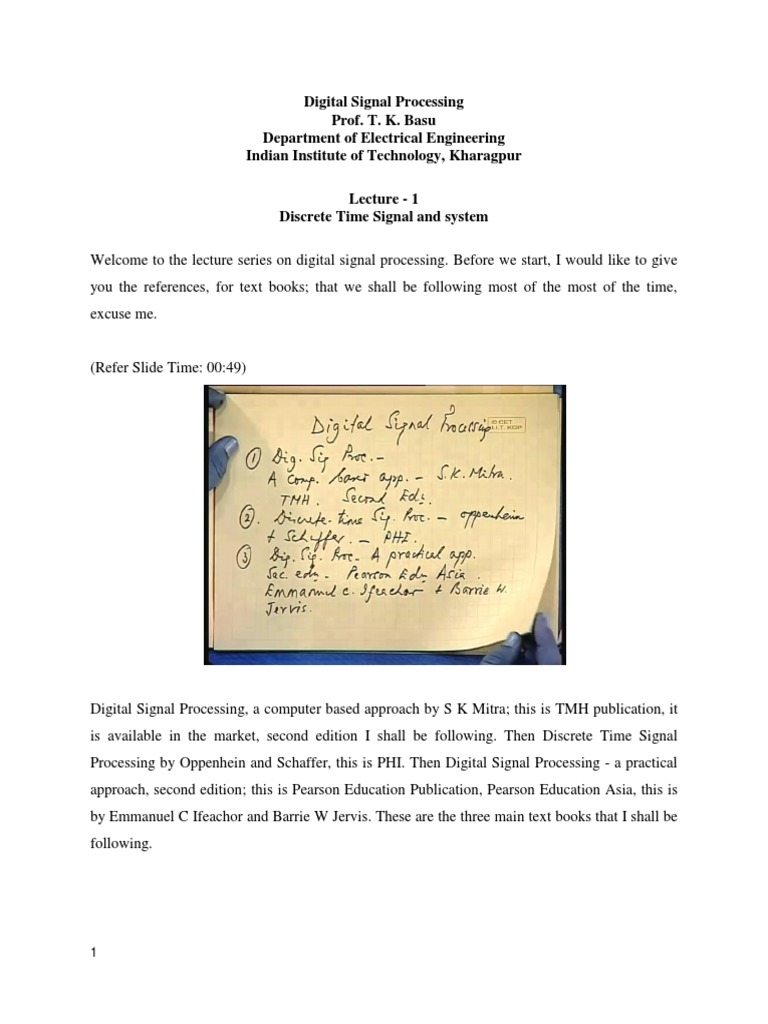 Digital Signal Processing
Prof. T. K. Basu
Department of Electrical Engineering
Indian Institute of Technology, Kharagpur
Lecture - 1
Discrete Time Signal and system
Welcome to the lecture series on digital signal processing. Before we start, I would like to give
you the references, for text books; that we shall be following most of the most of the time,
excuse me.
(Refer Slide Time: 00:49)
Digital Signal Processing
© CET
I.I.T. KGP
① Dig. Sig Proc. -
A Comp. based app. - S.K. Mitra.
TMH. Second Edn.
②. Discrete-time Sig. Proc. - oppenheim
+ Schaffer. - PHI.
③ Dig. Sig. Proc - A practical app.
Sec. edn - Pearson Edn Asia.
Emmanuel C. Ifeachor + Barrie W.
Jervis.
Digital Signal Processing, a computer based approach by S K Mitra; this is TMH publication, it
is available in the market, second edition I shall be following. Then Discrete Time Signal
Processing by Oppenhein and Schaffer, this is PHI. Then Digital Signal Processing - a practical
approach, second edition; this is Pearson Education Publication, Pearson Education Asia, this is
by Emmanuel C Ifeachor and Barrie W Jervis. These are the three main text books that I shall be
following.
1